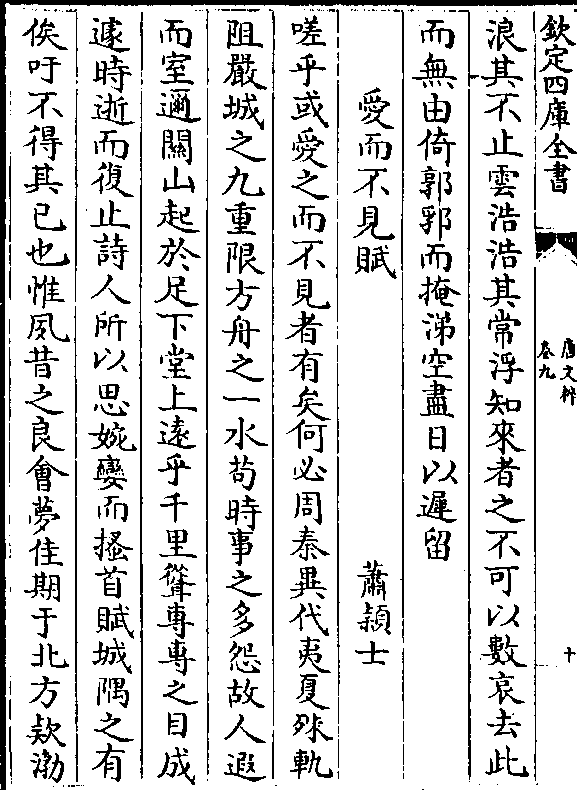 欽定四庫全書
唐文粹
卷九
十
浪其不止雲浩浩其常浮知來者之不可以數哀去此
而無由倚郭郛而掩涕空盡日以遲留
愛而不見賦
蕭潁士
嗟乎或愛之而不見者有矣何必周秦異代夷夏殊軌
阻嚴城之九重限方舟之一水茍時事之多怨故人遐
而室邇闗山起於足下堂上逺乎千里聳專專之目成
遽時逝而復止詩人所以思婉孌而搔首賦城隅之有
俟吁不得其已也惟夙昔之良㑹夢佳期于北方欵渤